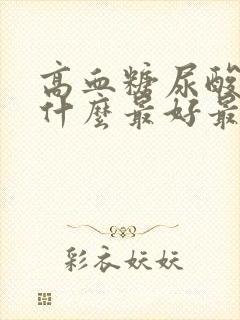 高血糖尿酸
什麼最好最
彩衣妖妖